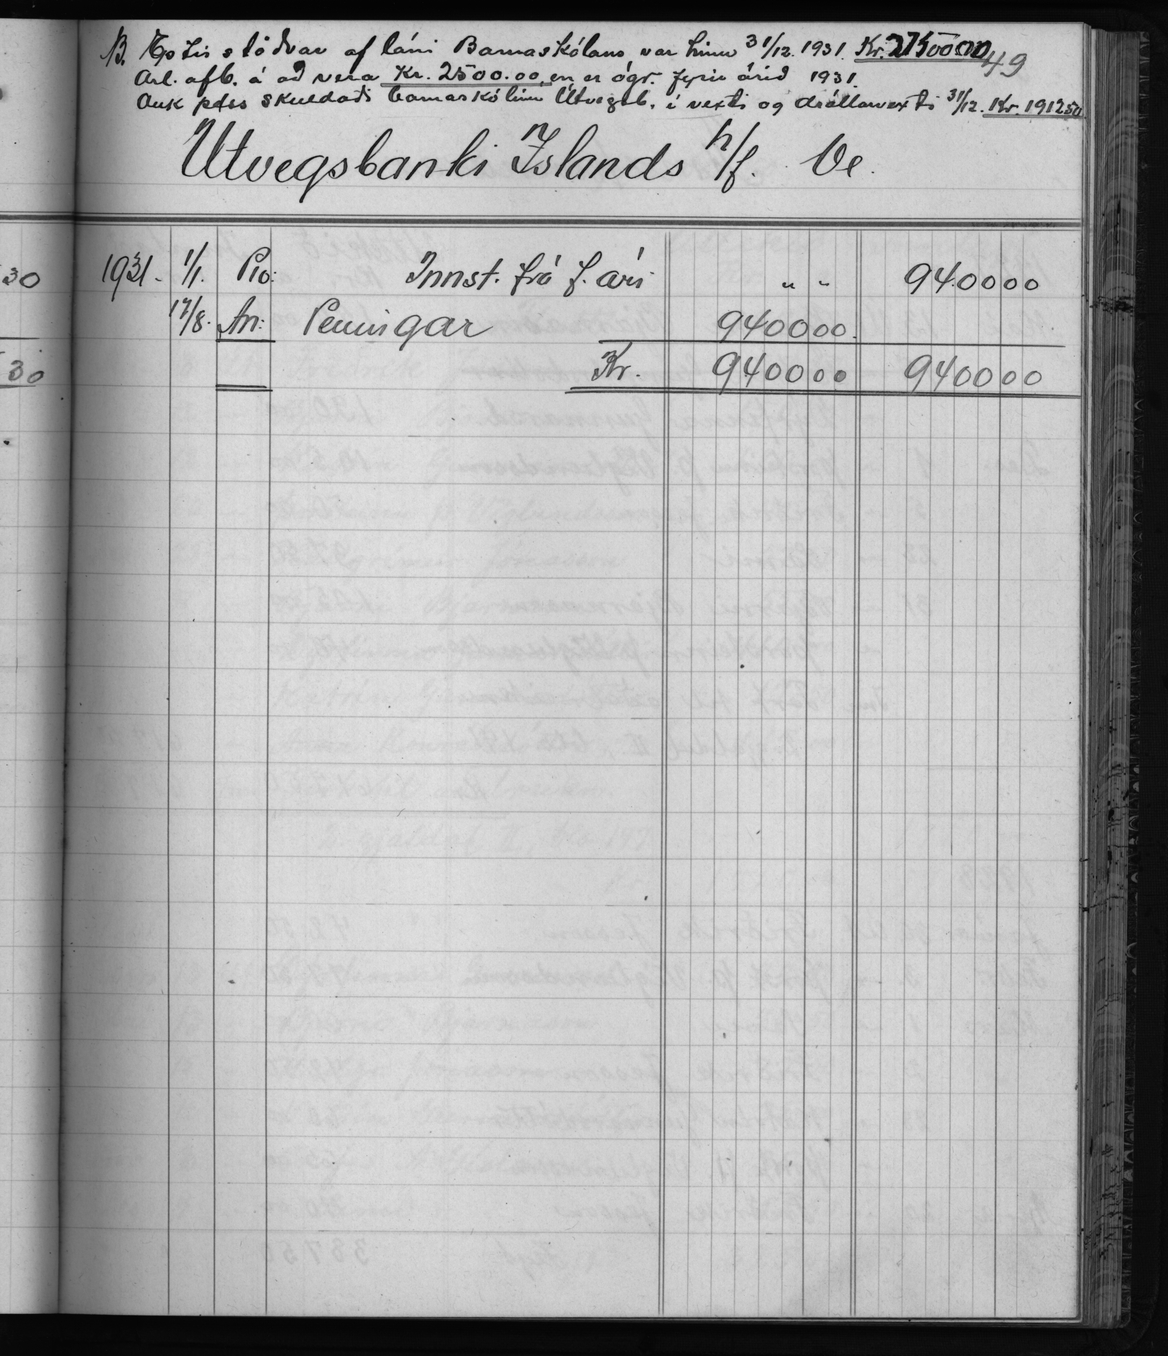 B. Eptirstöðvar af láni Barnaskólans var hinn 31/12. 1931. Kr. 27500.00 49
Árl. afb. á að vera Kr. 2500.00, en er ógr. fyrir árið 1931.
Auk þess skuldaði barnaskólinn Útvegsb. í vexti og dráttarvexti 31/12. Kr. 1912.50
Útvegsbanki Íslands h/f. Ve.
30 1931. 1/1. Pr: Innst. frá f. ári " " 9400 00
17/8. An: Peningar 9400 00.
30 Kr. 9400 00 9400 00